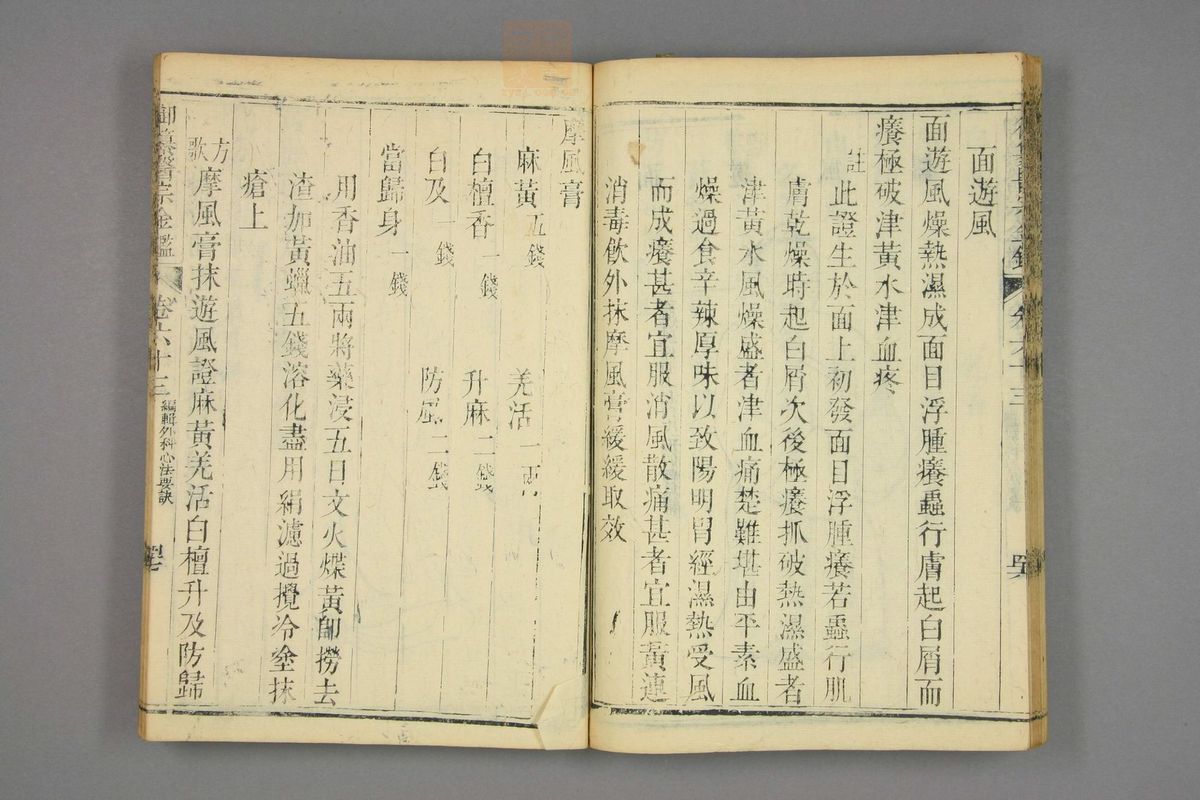 面遊風
面遊風燥熱濕成面目浮腫癢蟲行膚起白屑而
癢極破津黃水津血疼
註此證生於面上初發面目浮腫癢若蟲行肌
膚乾燥時起白屑次後極癢抓破熱濕盛者
津黃水風燥盛者津血痛楚難堪由平素血
燥過食辛辣厚味以致陽明胃經濕熱受風
而成癢甚者宜服消風散痛甚者宜服黃連
消毒飲外抹摩風膏緩緩取效
摩風膏
麻黃五錢 羌活一兩
白檀香一錢 升麻二錢
白及一錢 防風二錢
當歸身一錢
用香油五兩將藥浸五日文火煠黃卽撈去
渣加黃蠟五錢溶化盡用絹濾過攪冷塗抹
瘡上
方歌摩風膏抹遊風證麻黃羌活白檀升及防歸
醫宗金鑑 卷六十三 編輯外科心法要訣